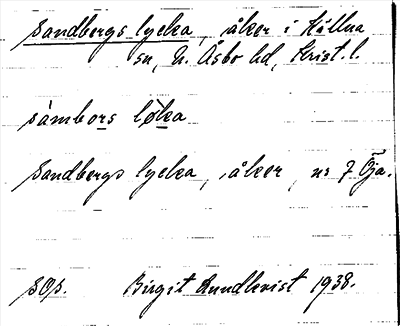 Sandbergs lycka, åker i Källna
sn, N. Åsbo hd, Krist. l.
sambors løka
Sandbergs lycka, åker, nr 7 Öja.
Birgit Rundkvist 1938.